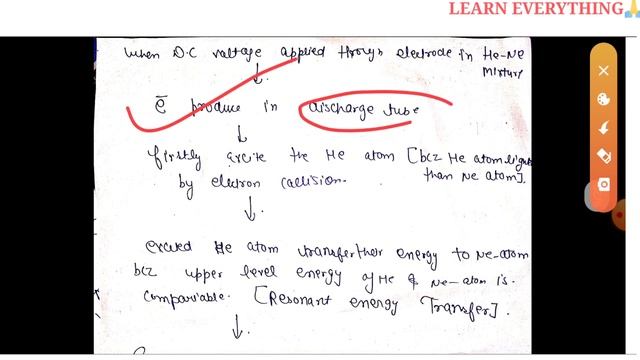 LEARN EVERYTHING🙏
When D.C voltage applied through electrode in He-Ne
Mixture
↓
ē produce in discharge tube
↓
firstly excite the He atom [bcz He atom light
by electron collision. than Ne atom].
↓
excited He atom transfer their energy to Ne-atom
bcz upper level energy of He & Ne-atom is.
comparable. [Resonant energy Transfer].
↓